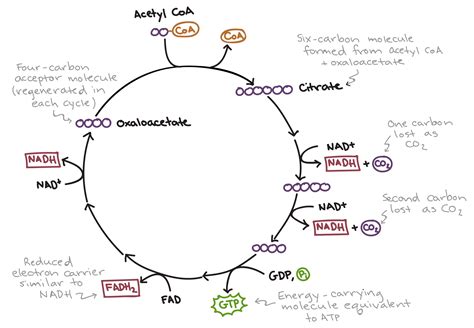 Acetyl CoA
CoA
CoA
Six-carbon molecule
formed from acetyl CoA
+ oxaloacetate
Four-carbon
acceptor molecule
(regenerated in
each cycle)
Citrate
Oxaloacetate
One carbon
lost as
CO₂
NAD⁺
NADH + CO₂
NADH
NAD⁺
Second carbon
lost as CO₂
NAD⁺
NADH + CO₂
Reduced
electron carrier
similar to
NADH
FADH₂
FAD
GDP, Pi
GTP
Energy-carrying
molecule equivalent
to ATP